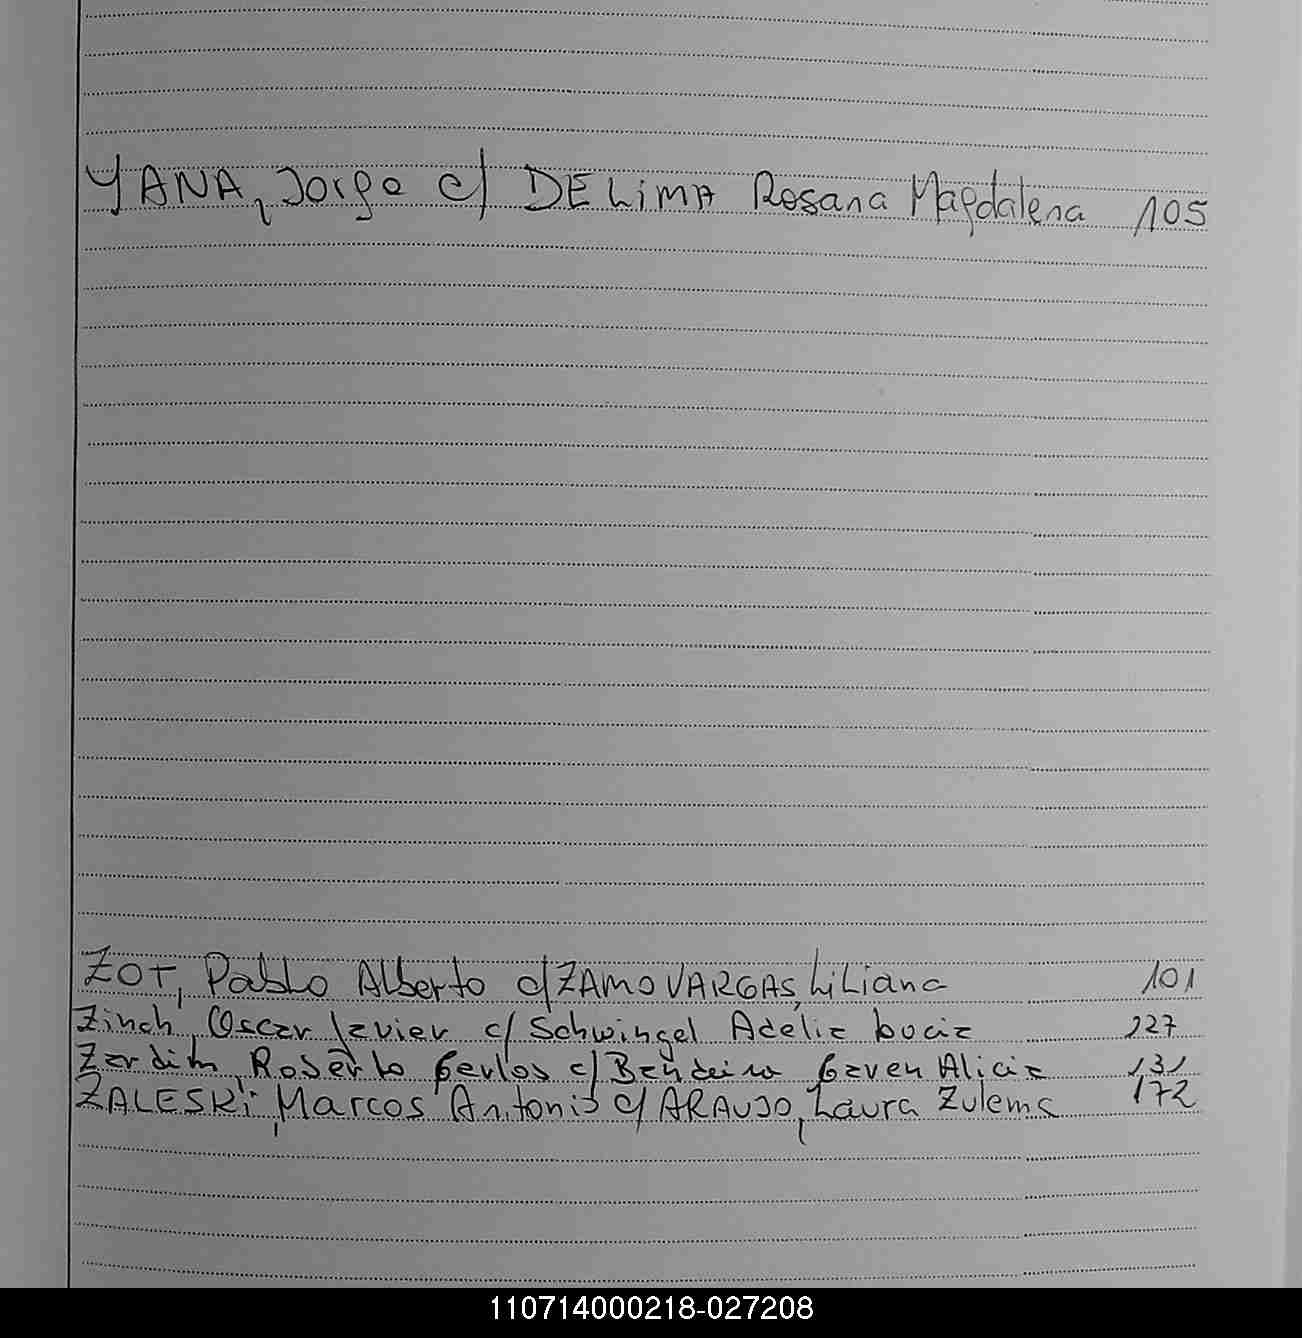 YANA, Jorge c/ DELIMA Rosana Magdalena 105
ZOT, Pablo Alberto c/ ZAMO VARGAS, Liliana 101
Zinch Oscar Javier c/ Schwingel Adelia Lucia 127
Zardin, Roberto Carlos c/ Bandeira Caren Alicia 131
ZALESKi, Marcos Antonio c/ ARAUJO, Laura Zulema 172
110714000218-027208